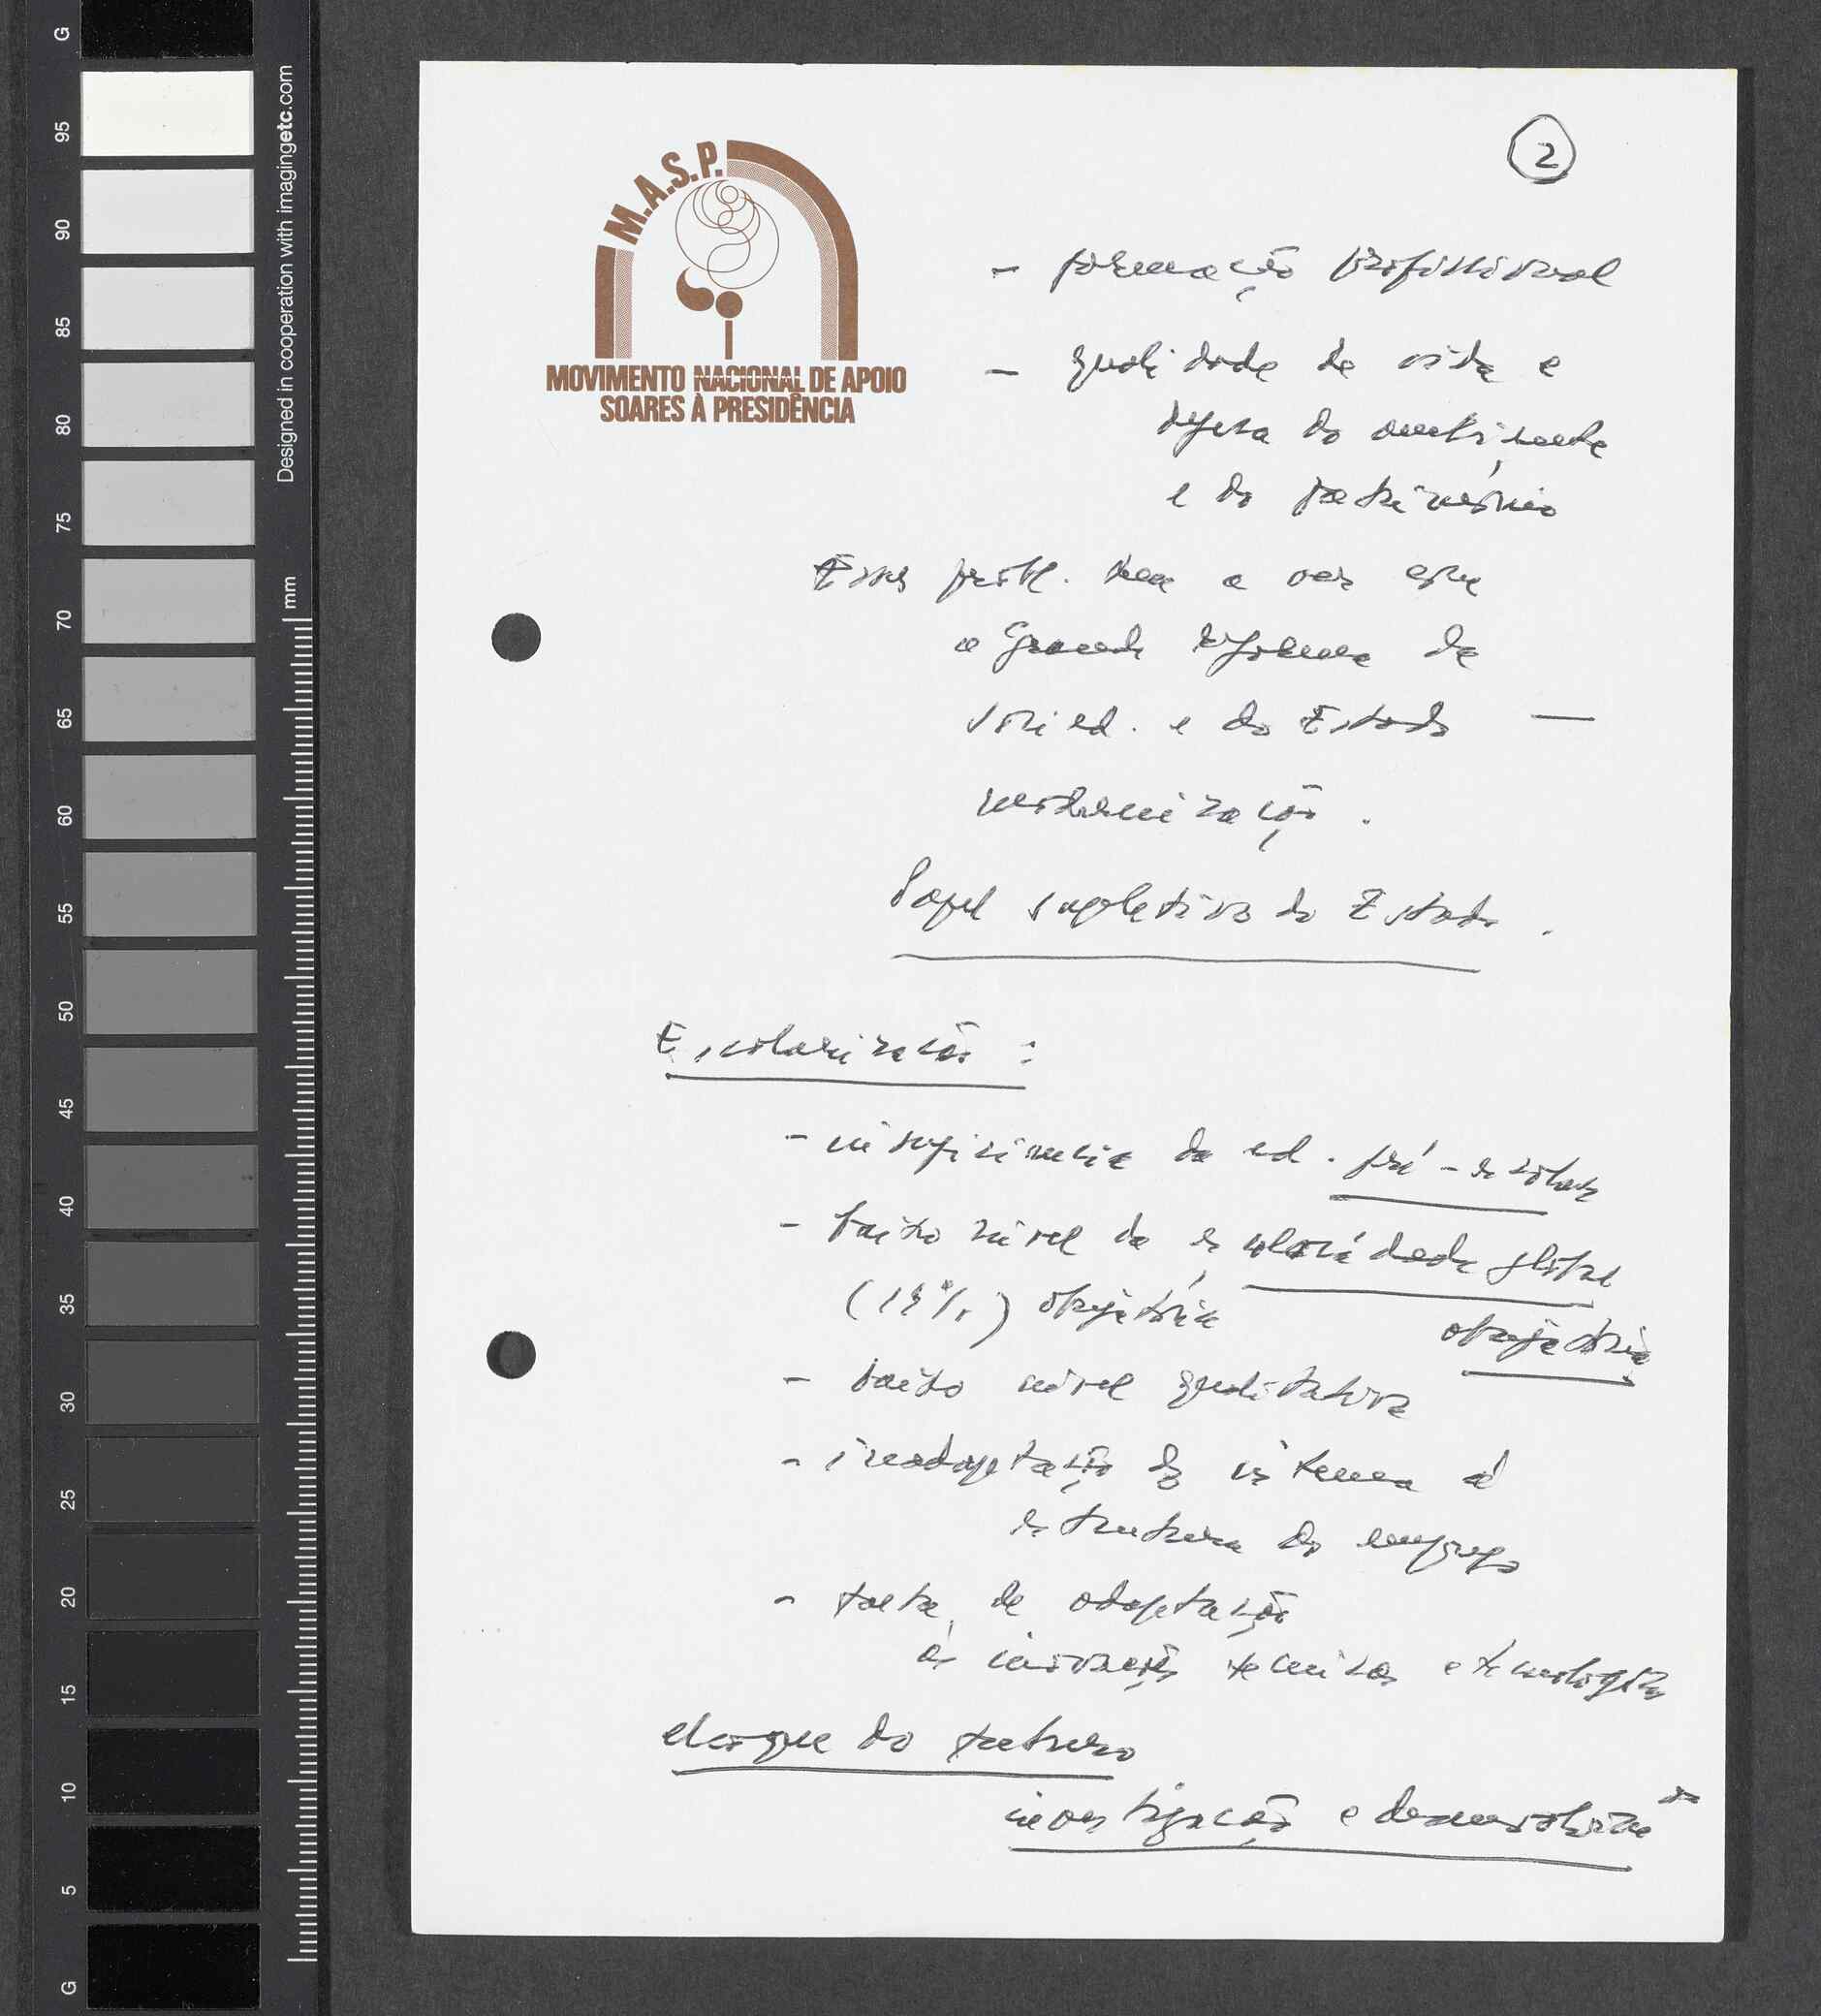 2
M.A.S.P.
MOVIMENTO NACIONAL DE APOIO
SOARES À PRESIDÊNCIA
- formação profissional
- qualidade de vida e
defesa do ambiente
e do património
Esses probl. tem a ver com
a Grande reforma da
socied. e do Estado —
modernização.
Papel supletivo do Estado.
Escolarização:
- insuficiencia da ed. pré-escolar
- baixo nivel da escolaridade global
(19%) obrigatória
obrigatória
- baixo nível qualitativo
- inadaptação do sistema à
estrutura do emprego
- falta de adaptação
às inovações técnicas e tecnológicas
choque do futuro
investigação e desenvolvimto
Designed in cooperation with imagingetc.com
mm
G
95
90
85
80
75
70
65
60
55
50
45
40
35
30
25
20
15
10
5
G